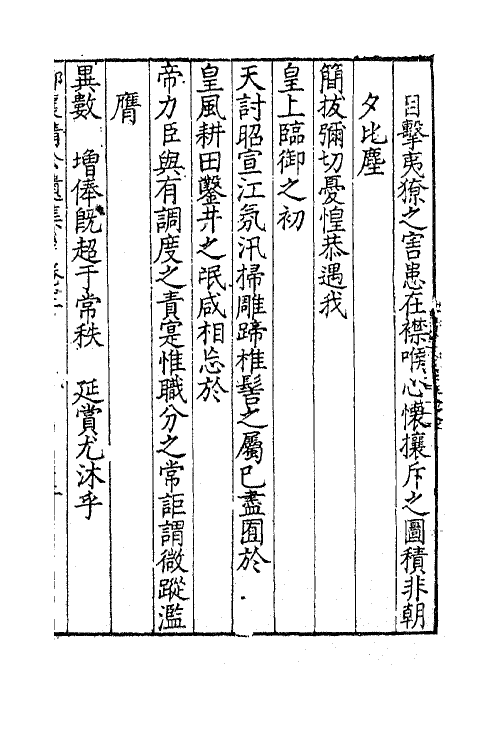 目擊夷獠之害患在襟喉心懷攘斥之圖積非朝
夕比塵
簡拔彌切憂惶恭遇我
皇上臨御之初
天討昭宣江氛汛掃雕蹄椎髻之屬已盡囿於
皇風耕田鑿井之氓咸相忘於
帝力臣與有調度之責寔惟職分之常詎謂微蹤濫
膺
異數　增俸旣超于常秩　延賞尤沐乎